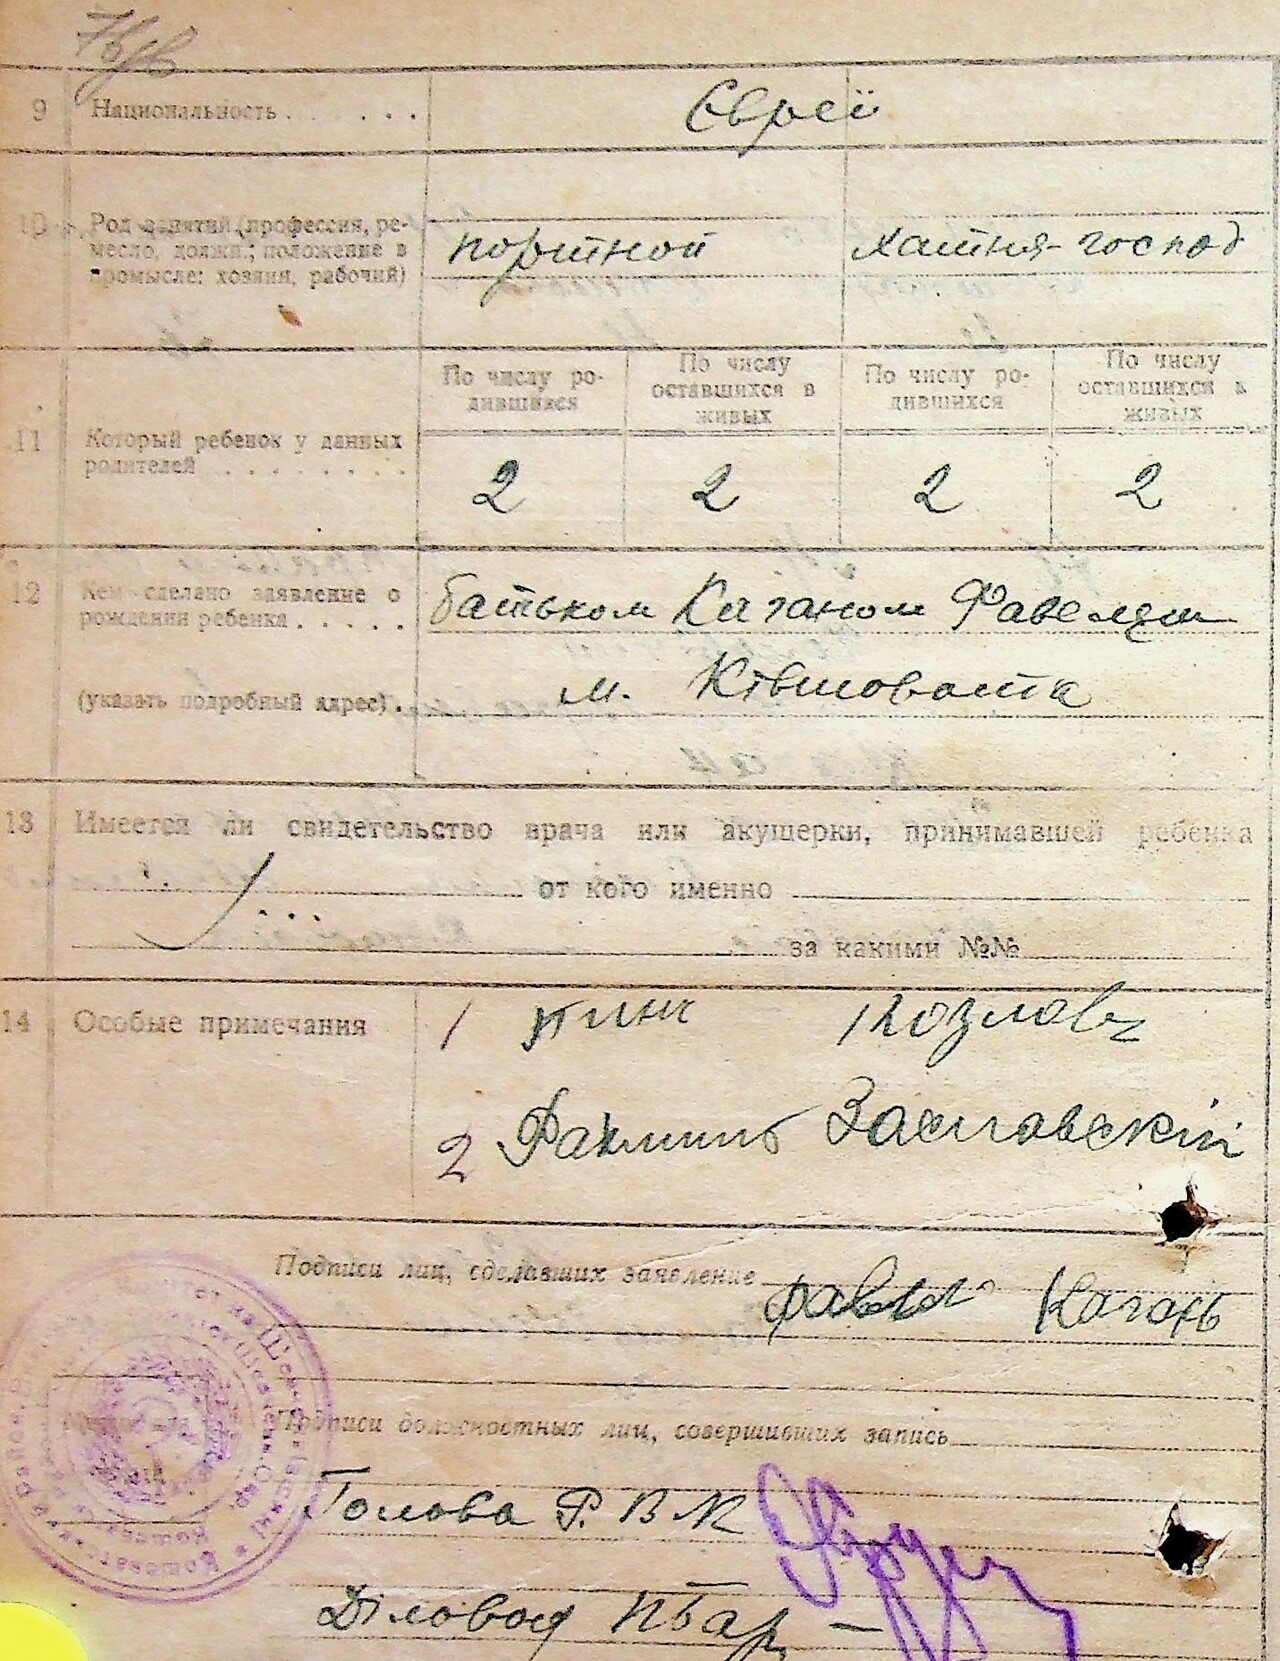 9 Национальность . . . . . Євреї
10 Род занятий (профессия, ре-
месло, должн.; положение в
промысле: хозяин, рабочий)
портной хатня-господ
По числу ро-
дившихся
По числу
оставшихся в
живых
По числу ро-
дившихся
По числу
оставшихся в
живых
11 Который ребенок у данных
родителей . . . . . . . .
2 2 2 2
12 Кем сделано заявление о
рождении ребенка . . . . .
батьком Каганом
(указать подробный адрес) .
м. Ківшовата
13 Имеется ли свидетельство врача или акушерки, принимавшей ребенка
от кого именно
за какими №№
14 Особые примечания
1 Козлов
2 Заславский
Подписи лиц, сделавших заявление
Каганъ
Подписи должностных лиц, совершивших запись
Голова Р. В К
Діловод